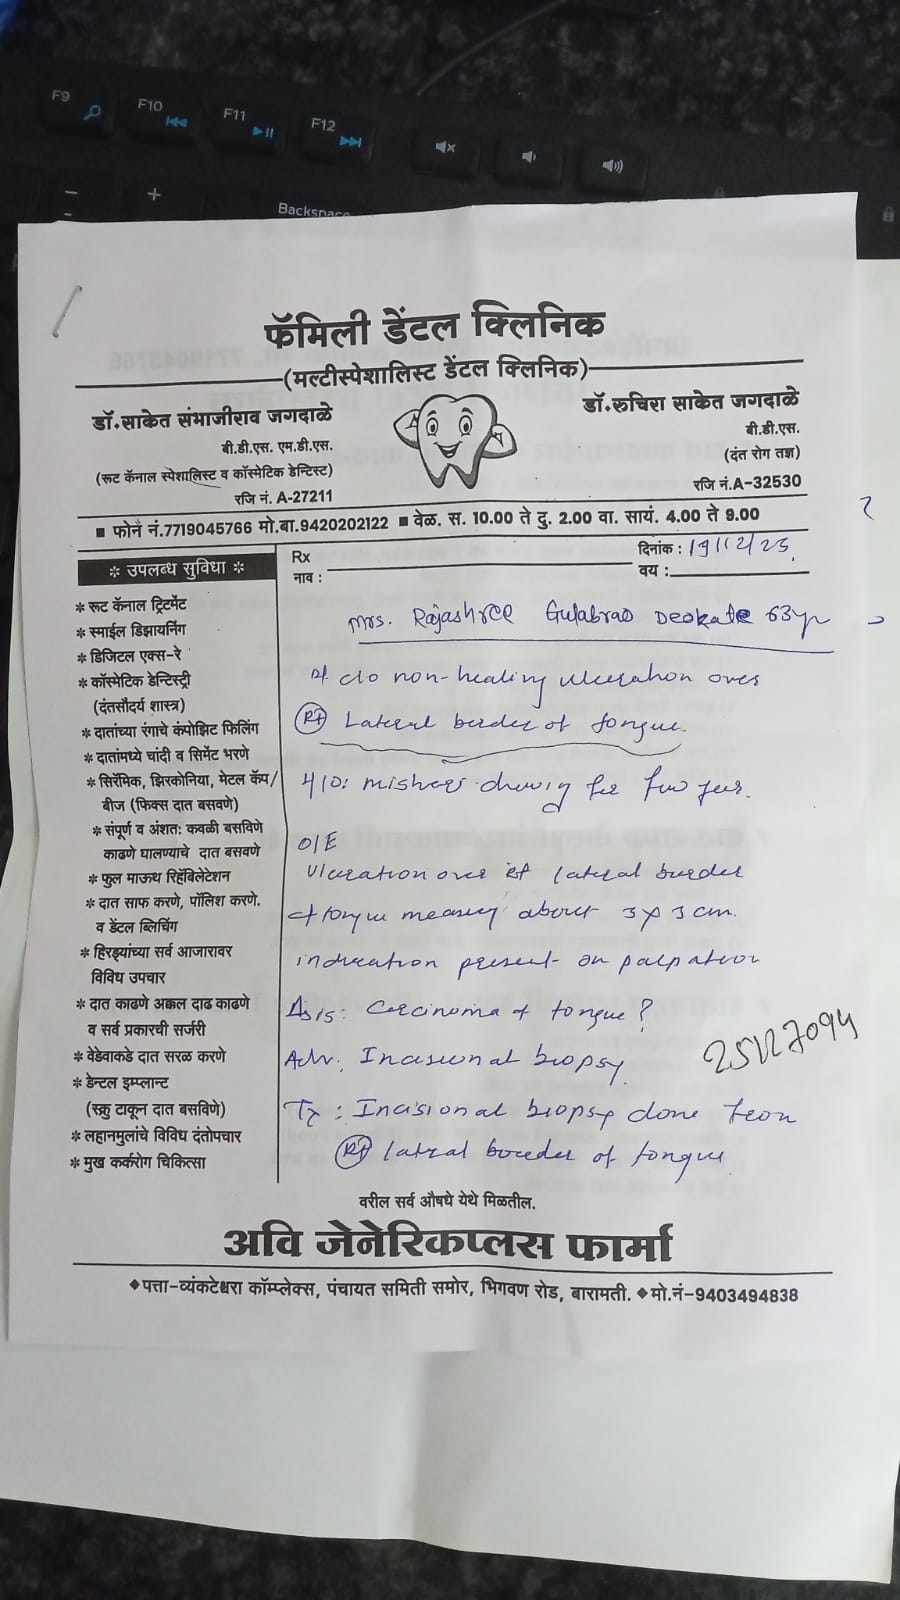 F9
F10
F11
F12
Backspace
फॅमिली डेंटल क्लिनिक
(मल्टीस्पेशालिस्ट डेंटल क्लिनिक)
डॉ.साकेत संभाजीराव जगदाळे
बी.डी.एस. एम.डी.एस.
(रूट कॅनाल स्पेशालिस्ट व कॉस्मेटिक डेन्टिस्ट)
रजि नं. A-27211
डॉ.रुचिरा साकेत जगदाळे
बी.डी.एस.
(दंत रोग तज्ञ)
रजि नं.A-32530
■ फोन नं.7719045766 मो.बा.9420202122 ■ वेळ. स. 10.00 ते दु. 2.00 वा. सायं. 4.00 ते 9.00
❊ उपलब्ध सुविधा ❊
❊ रूट कॅनाल ट्रिटमेंट
❊ स्माईल डिझायनिंग
❊ डिजिटल एक्स-रे
❊ कॉस्मेटिक डेन्टिस्ट्री
(दंतसौदर्य शास्त्र)
❊ दातांच्या रंगाचे कंपोझिट फिलिंग
❊ दातांमध्ये चांदी व सिमेंट भरणे
❊ सिरॅमिक, झिरकोनिया, मेटल कॅप/
बीज (फिक्स दात बसवणे)
❊ संपूर्ण व अंशत: कवळी बसविणे
काढणे घालण्याचे दात बसवणे
❊ फुल माऊथ रिहॅबिलेटेशन
❊ दात साफ करणे, पॉलिश करणे.
व डेंटल ब्लिचिंग
❊ हिरड्यांच्या सर्व आजारावर
विविध उपचार
❊ दात काढणे अक्कल दाढ काढणे
व सर्व प्रकारची सर्जरी
❊ वेडेवाकडे दात सरळ करणे
❊ डेन्टल इम्प्लान्ट
(स्क्रु टाकून दात बसविणे)
❊ लहानमुलांचे विविध दंतोपचार
❊ मुख कर्करोग चिकित्सा
Rx
नाव :
दिनांक : 19/12/25
वय :
Mrs. Rajashree Gulabrao Deokate 63yr
Pt c/o non-healing ulceration over
(Rt) Lateral border of tongue.
H/O: misheri chewing for few year.
O/E
Ulceration over Rt lateral border
of tongue measury about 3 x 3 cm.
induration present on palpation
Dsis: Carcinoma of tongue?
Adv. Incisional biopsy.
25127094
Tx: Incisional biopsy done from
(Rt) lateral border of tongue.
वरील सर्व औषधे येथे मिळतील.
अवि जेनेरिकप्लस फार्मा
◆पत्ता-व्यंकटेश्वरा कॉम्प्लेक्स, पंचायत समिती समोर, भिगवण रोड, बारामती. ◆मो.नं-9403494838